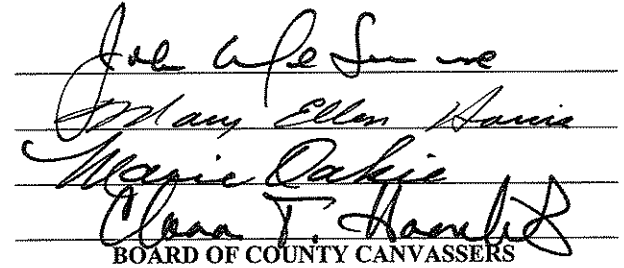 John
Mary Ellen Harris
Marie Oakie
Clara T.
BOARD OF COUNTY CANVASSERS